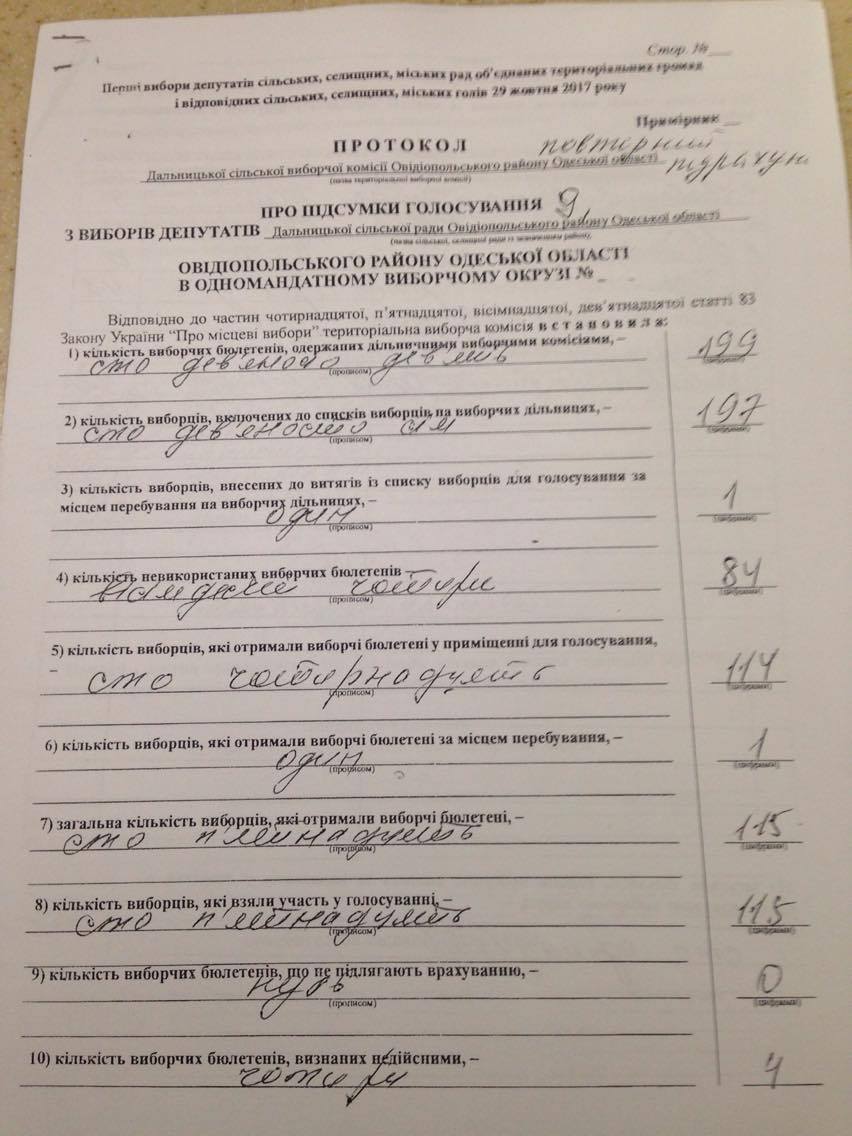 Стор. №
Перші вибори депутатів сільських, селищних, міських рад об'єднаних територіальних громад
і відповідних сільських, селищних, міських голів 29 жовтня 2017 року
Примірник
ПРОТОКОЛ повторний
Дальницької сільської виборчої комісії Овідіопольського району Одеської області підрахунок
(назва територіальної виборчої комісії)
ПРО ПІДСУМКИ ГОЛОСУВАННЯ 9
З ВИБОРІВ ДЕПУТАТІВ Дальницької сільської ради Овідіопольського району Одеської області
(назва сільської, селищної ради із зазначенням району,
ОВІДІОПОЛЬСЬКОГО РАЙОНУ ОДЕСЬКОЇ ОБЛАСТІ
В ОДНОМАНДАТНОМУ ВИБОРЧОМУ ОКРУЗІ №
Відповідно до частин чотирнадцятої, п'ятнадцятої, вісімнадцятої, дев'ятнадцятої статті 83
Закону України “Про місцеві вибори” територіальна виборча комісія встановила:
1) кількість виборчих бюлетенів, одержаних дільничними виборчими комісіями, –
сто дев'яносто дев'ять 199
(прописом) (цифрами)
2) кількість виборців, включених до списків виборців на виборчих дільницях, –
сто дев'яносто сім 197
(прописом) (цифрами)
3) кількість виборців, внесених до витягів із списку виборців для голосування за
місцем перебування на виборчих дільницях, –
один 1
(прописом) (цифрами)
4) кількість невикористаних виборчих бюлетенів –
вісімдесят чотири 84
(прописом) (цифрами)
5) кількість виборців, які отримали виборчі бюлетені у приміщенні для голосування,
–
сто чотирнадцять 114
(прописом) (цифрами)
6) кількість виборців, які отримали виборчі бюлетені за місцем перебування, –
один 1
(прописом) (цифрами)
7) загальна кількість виборців, які отримали виборчі бюлетені, –
сто п'ятнадцять 115
(прописом) (цифрами)
8) кількість виборців, які взяли участь у голосуванні, –
сто п'ятнадцять 115
(прописом) (цифрами)
9) кількість виборчих бюлетенів, що не підлягають врахуванню, –
нуль 0
(прописом) (цифрами)
10) кількість виборчих бюлетенів, визнаних недійсними, –
чотири 4